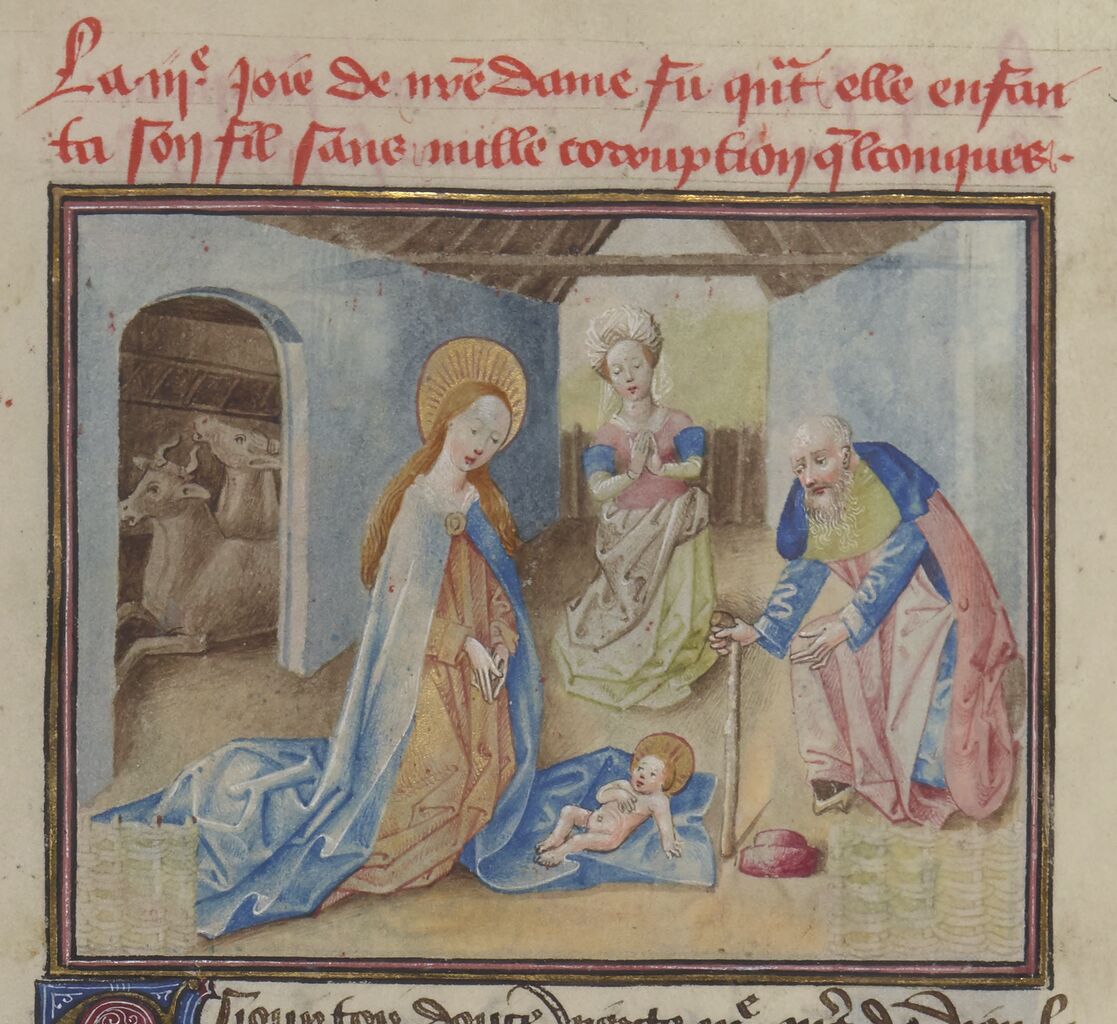 La .iije. Joie de nr̄e Dame fu qūt elle enfan
ta son fil sans nulle corruption q̄lconques.